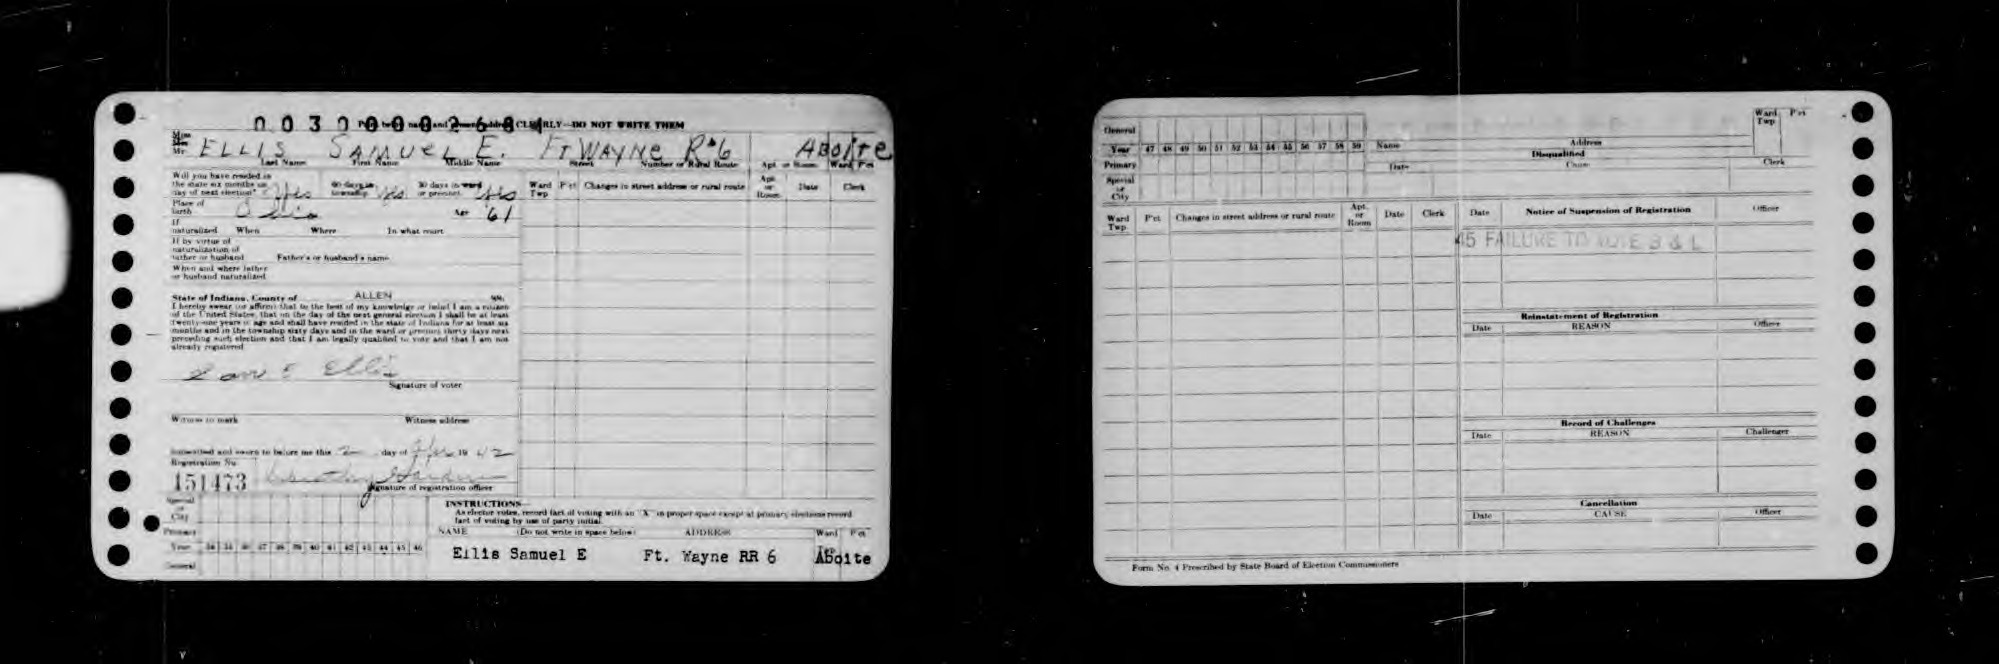 0030000268
Print below name and present address CLEARLY—DO NOT WRITE THEM
Miss
Mrs
Mr. ELLIS SAMUEL E. FT WAYNE R#6 Aboite
Last Name First Name Middle Name Street Number or Rural Route Apt. or Room Ward P'ct
Will you have resided in
the state six months on
day of next election? Yes 60 days in
township Yes 30 days in ward
or precinct Yes
Place of
birth Ohio Age 61
If
naturalized When Where In what court
If by virtue of
naturalization of
father or husband Father's or husband's name
When and where father
or husband naturalized
State of Indiana, County of ALLEN ss:
I hereby swear (or affirm) that to the best of my knowledge or belief I am a citizen
of the United States, that on the day of the next general election I shall be at least
twenty-one years of age and shall have resided in the state of Indiana for at least six
months and in the township sixty days and in the ward or precinct thirty days next
preceding such election and that I am legally qualified to vote and that I am not
already registered
Sam E Ellis
Signature of voter
Witness to mark Witness address
Subscribed and sworn to before me this 2 day of Apr 19 42
Registration No.
151473 Dorothy
Signature of registration officer
Ward
Twp P'ct Changes in street address or rural route Apt.
or
Room Date Clerk
Special
or
City
Primary
Year 34 35 36 37 38 39 40 41 42 43 44 45 46
General
INSTRUCTIONS—
As elector votes, record fact of voting with an "X" in proper space except at primary elections record
fact of voting by use of party initial.
NAME (Do not write in space below) ADDRESS Ward P'ct
Ellis Samuel E Ft. Wayne RR 6 Aboite
General
Year 47 48 49 50 51 52 53 54 55 56 57 58 59
Primary
Special
or
City
Name Address
Disqualified
Date Cause Clerk
Ward
Twp P'ct
Ward
Twp P'ct Changes in street address or rural route Apt.
or
Room Date Clerk
Date Notice of Suspension of Registration Officer
45 FAILURE TO VOTE B & L
Reinstatement of Registration
Date REASON Officer
Record of Challenges
Date REASON Challenger
Cancellation
Date CAUSE Officer
Form No. 4 Prescribed by State Board of Election Commissioners